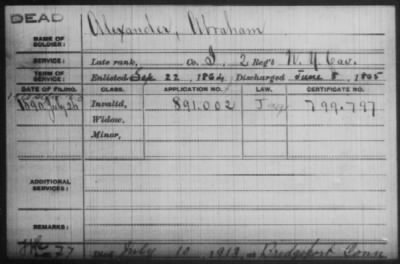 DEAD
Alexander, Abraham
NAME OF SOLDIER:
SERVICE: Late rank, Co. I, 2 Reg't N.Y. Cav.
TERM OF SERVICE: Enlisted Sep 22, 1864 Discharged June 8, 1865
DATE OF FILING. CLASS. APPLICATION NO. LAW. CERTIFICATE NO.
1890, July 26 Invalid, 891.002 799.797
Widow,
Minor,
ADDITIONAL SERVICES:
REMARKS:
July 10, 1912, at Bridgeport Conn